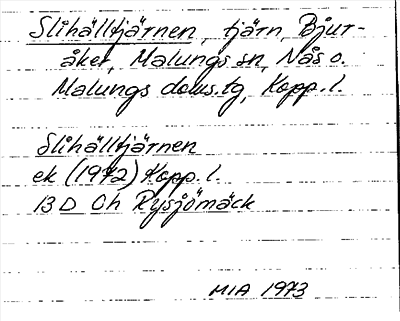 Slihälltjärnen, tjärn, Bjur-
åker, Malungs sn, Nås o.
Malungs doms.tg, Kopp. l.
Slihälltjärnen
ek (1972) Kopp. l.
13 D Ch Rysjömäck
MIA 1973